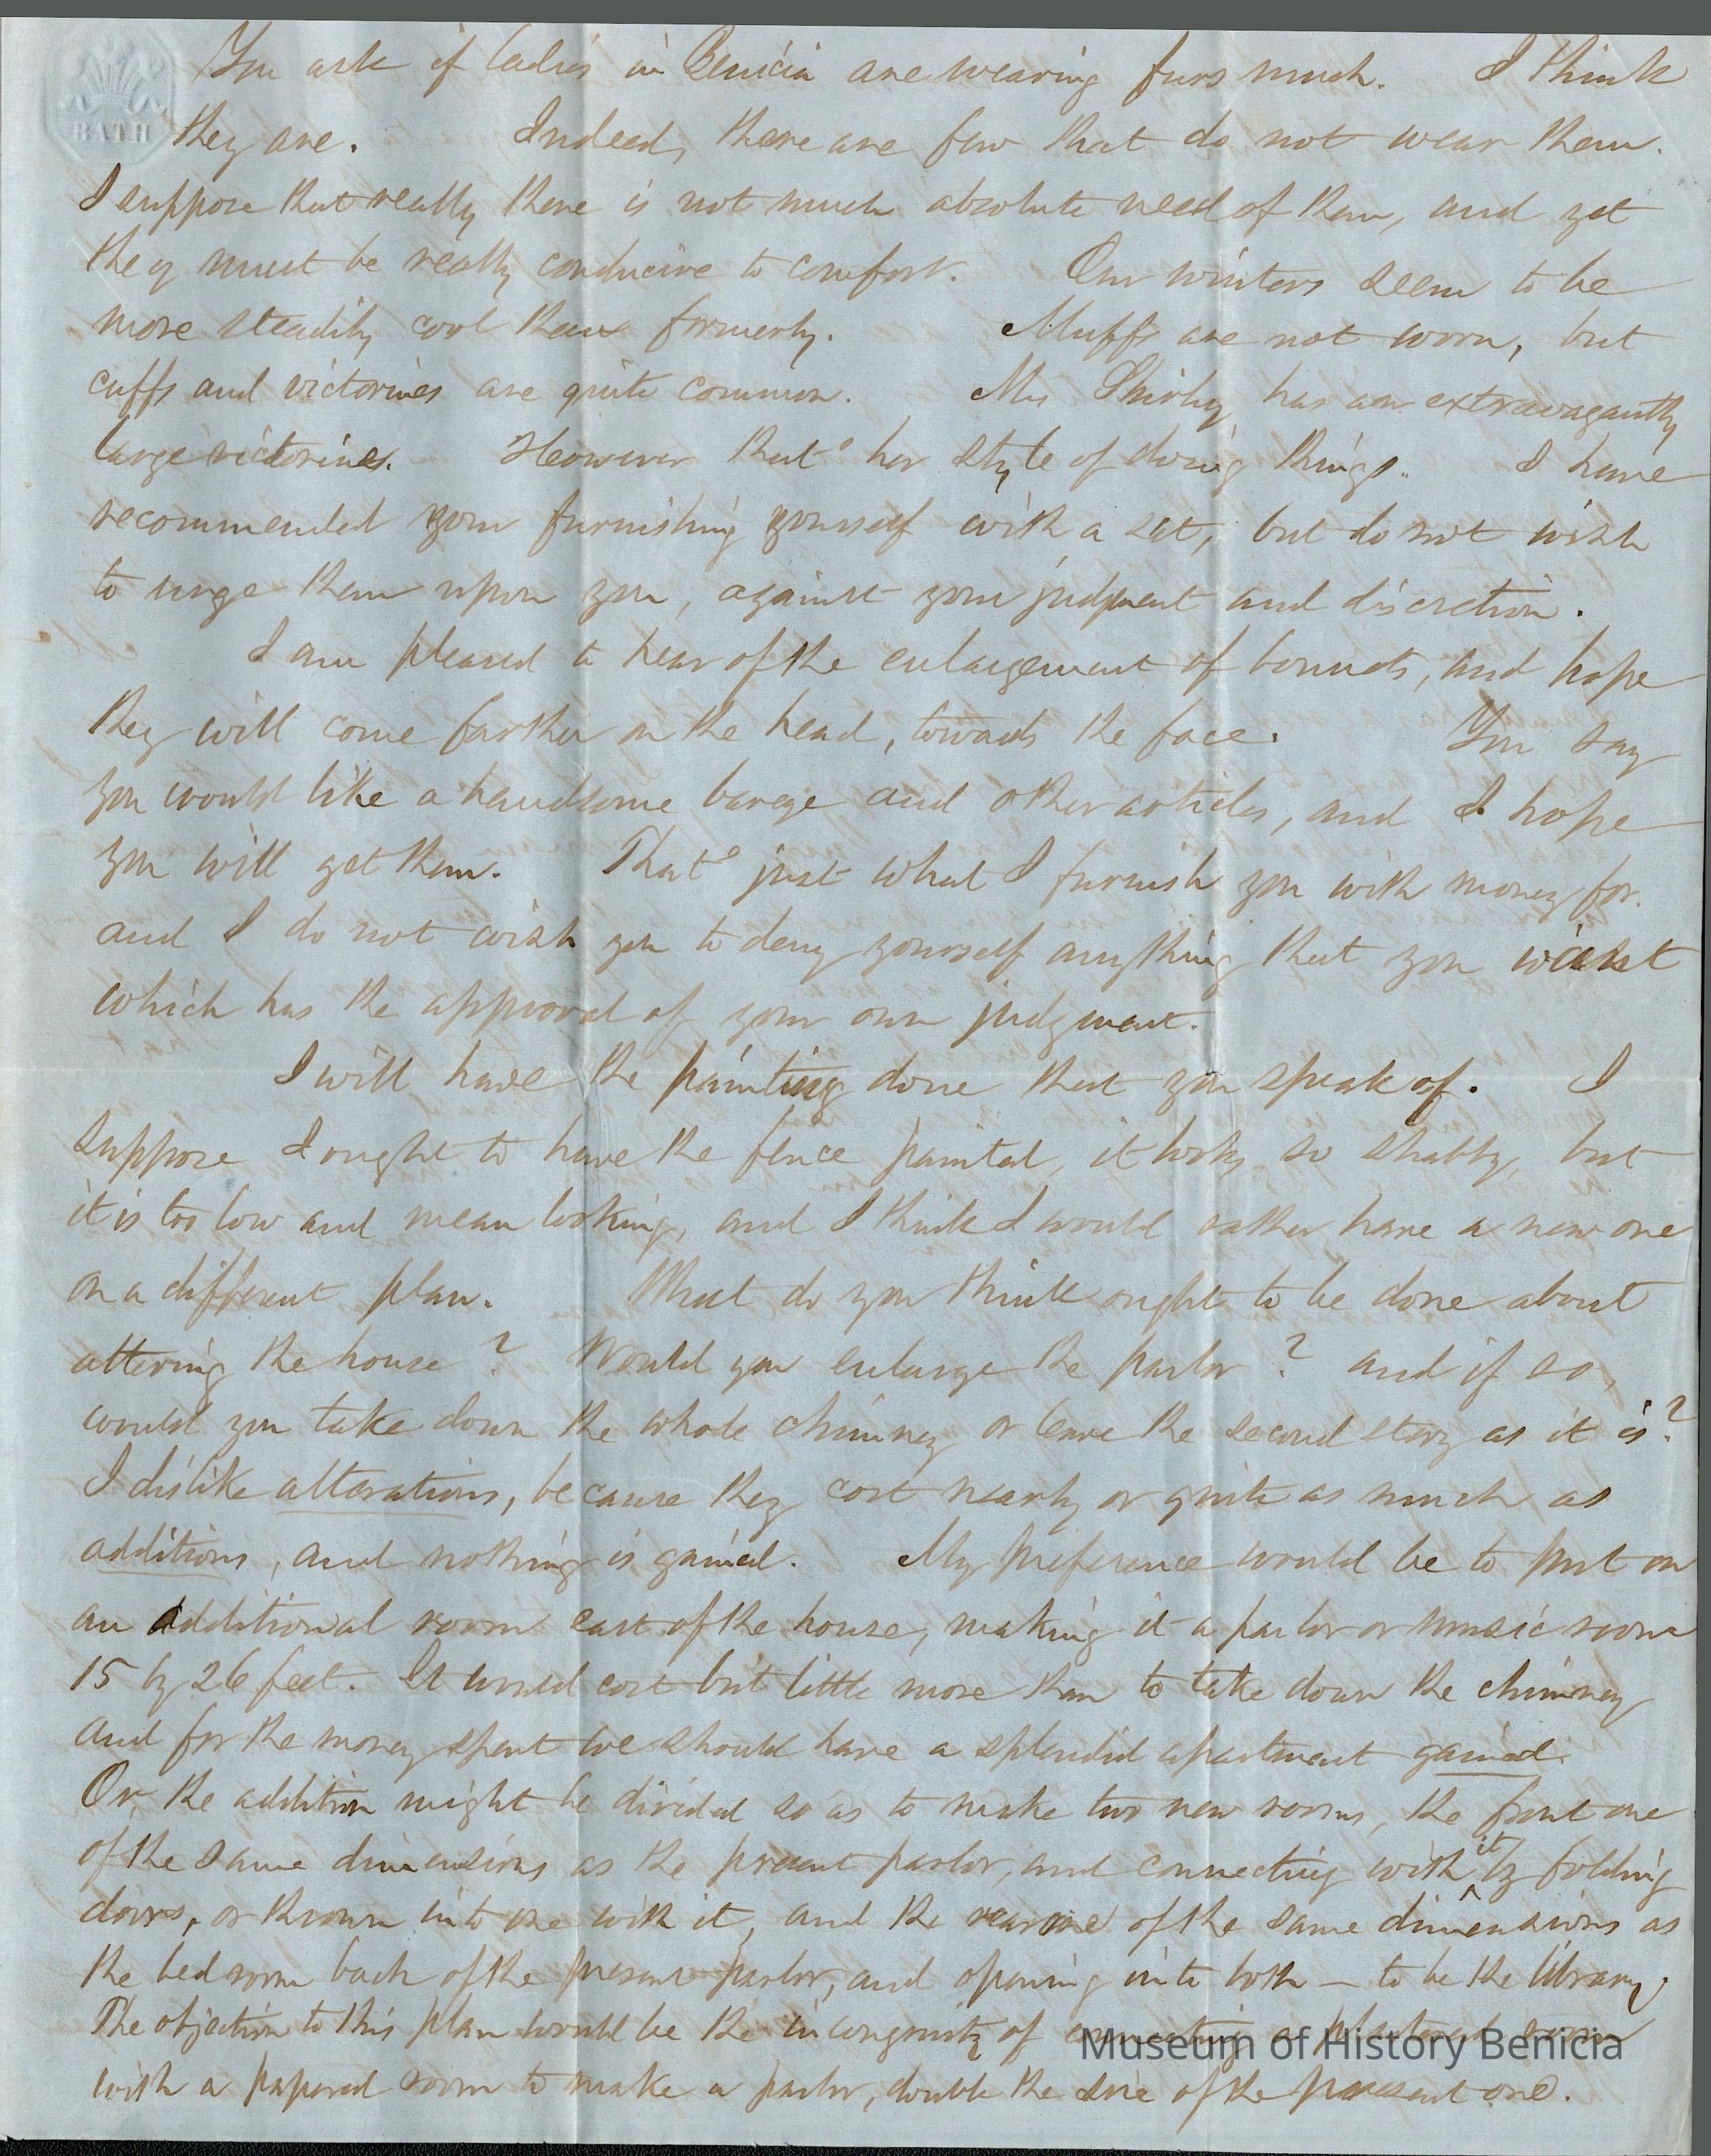 BATH
You ask if ladies in Benicia are wearing furs much. I think
they are. Indeed, there are few that do not wear them.
I suppose that really there is not much absolute need of them, and yet
they must be really conducive to comfort. Our winters seem to be
more steadily cool than formerly. Muffs are not worn, but
cuffs and victorines are quite common. Mrs Shirley has an extravagantly
large victorines. However that's her style of doing things. I have
recommended your furnishing yourself with a set, but do not wish
to urge them upon you, against your judgment and discretion.
I am pleased to hear of the enlargement of bonnets, and hope
they will come farther on the head, towards the face. You say
you would like a handsome barege and other articles, and I hope
you will get them. That's just what I furnish you with money for.
and I do not wish you to deny yourself anything that you want
which has the approval of your own judgment.
I will have the painting done that you speak of. I
suppose I ought to have the fence painted, it looks so shabby, but
it is too low and mean looking, and I think I would rather have a new one
on a different plan. What do you think ought to be done about
altering the house? Would you enlarge the parlor? and if so,
would you take down the whole chimney or leave the second story as it is?
I dislike alterations, because they cost nearly or quite as much as
additions, and nothing is gained. My preference would be to put on
an additional room east of the house, making it a parlor or music room
15 by 26 feet. It would cost but little more than to take down the chimney
and for the money spent we should have a splendid apartment gained.
Or the addition might be divided so as to make two new rooms, the front one
of the same dimensions as the present parlor, and connecting with it by folding
doors, or thrown into one with it, and the rear one of the same dimensions as
the bedroom back of the present parlor, and opening into both — to be the library.
The objection to this plan would be the incongruity of connecting a plastered room
with a papered room to make a parlor, double the size of the present one.
Museum of History Benicia